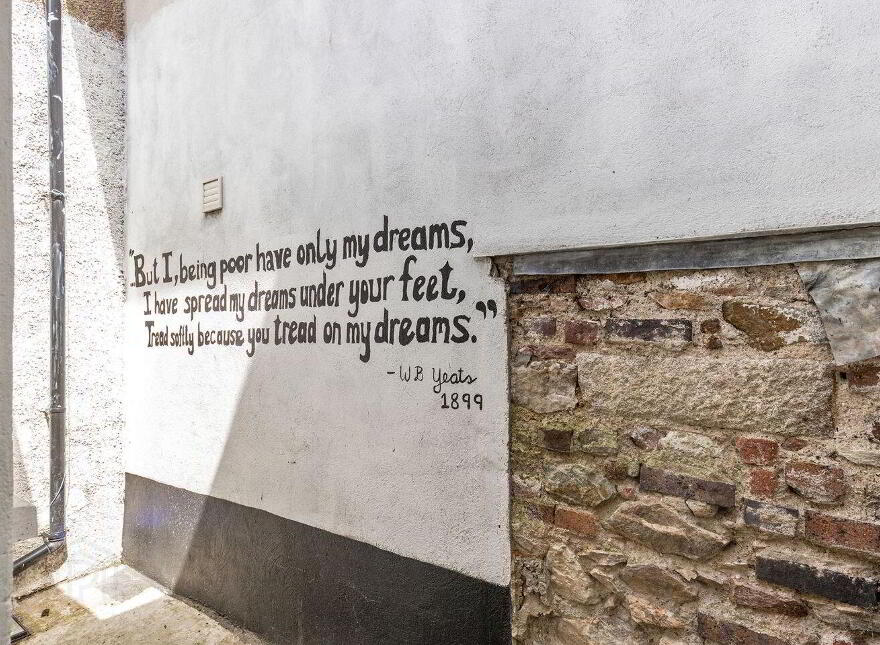 "But I, being poor have only my dreams,
I have spread my dreams under your feet,
Tread softly because you tread on my dreams."
- W B Yeats
1899